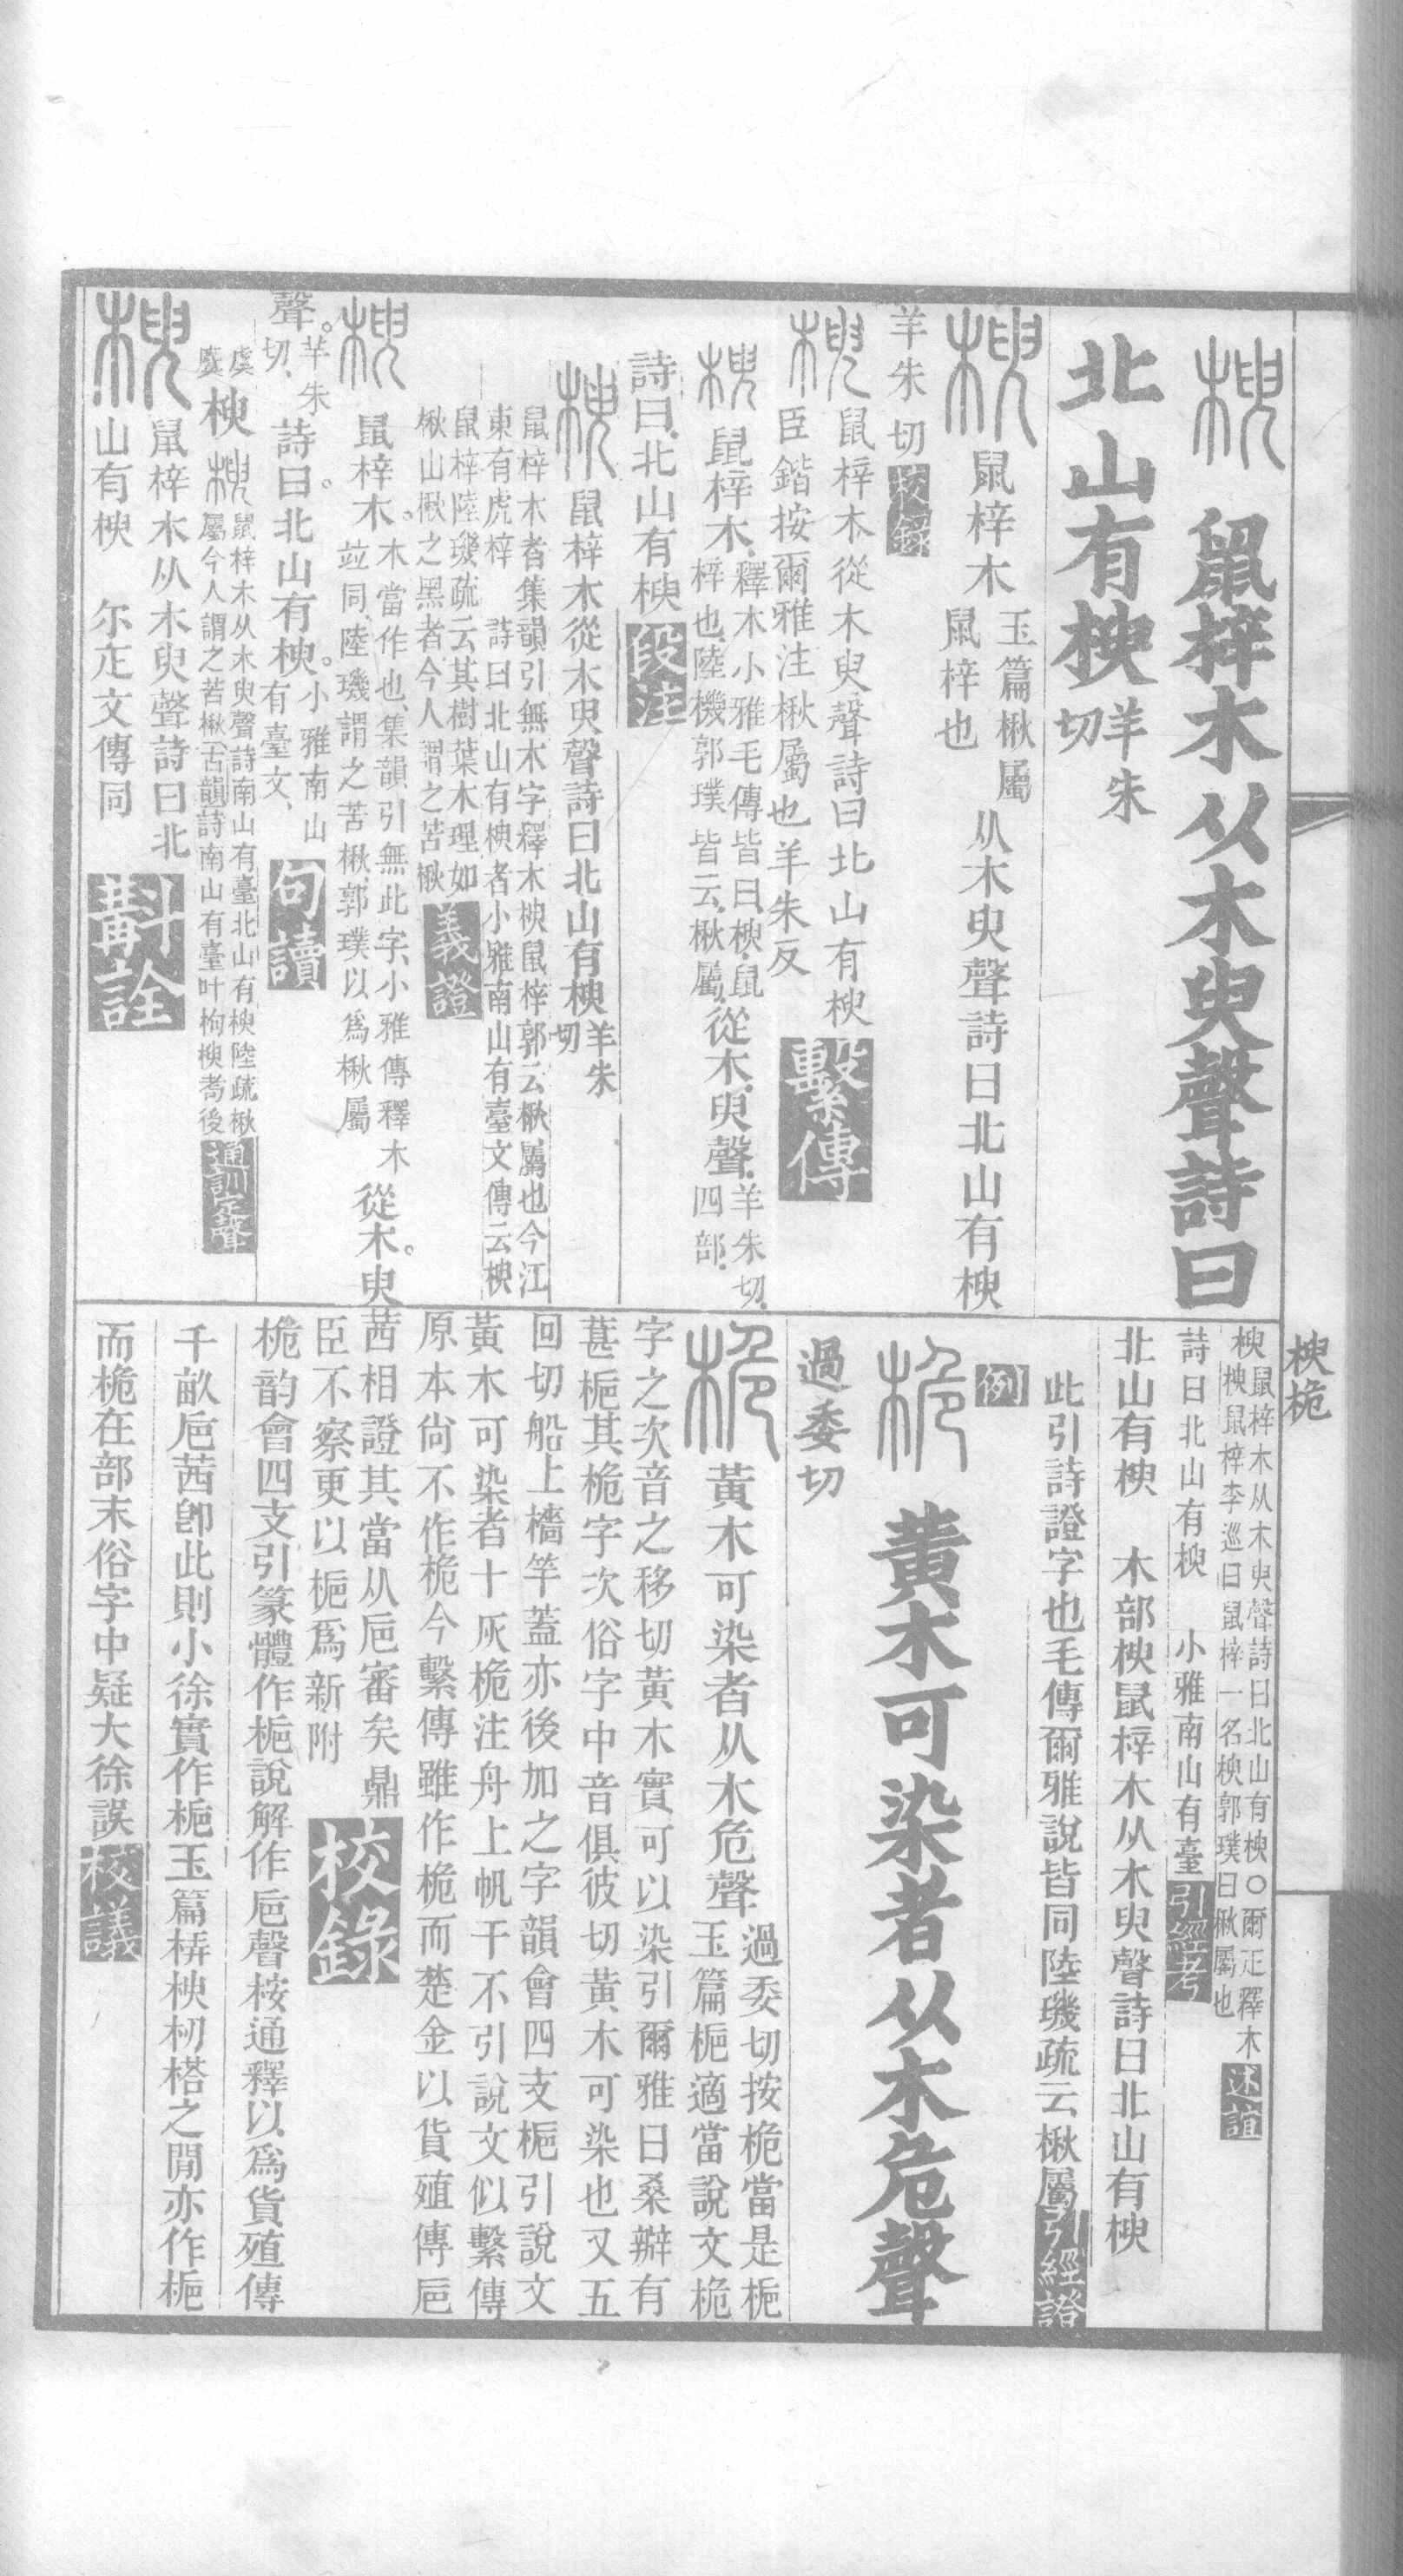 楰 鼠梓木从木臾聲詩曰
北山有楰羊朱切
楰 鼠梓木玉篇楸屬鼠梓也从木臾聲詩曰北山有楰
羊朱切 校錄
楰 鼠梓木從木臾聲詩曰北山有楰
臣鍇按爾雅注楸屬也羊朱反 繫傳
楰 鼠梓木釋木小雅毛傳皆曰楰鼠梓也陸機郭璞皆云楸屬從木臾聲羊朱切四部
詩曰北山有楰 段注
楰 鼠梓木從木臾聲詩曰北山有楰羊朱切
鼠梓木者集韻引無木字釋木楰鼠梓郭云楸屬也今江
東有虎梓 詩曰北山有楰者小雅南山有臺文傳云楰
鼠梓陸璣疏云其樹葉木理如
楸山楸之黑者今人謂之苦楸 義證
楰 鼠梓木木當作也集韻引無此字小雅傳釋木竝同陸璣謂之苦楸郭璞以爲楸屬從木臾
聲羊朱切詩曰北山有楰小雅南山有臺文 句讀
虞虞楰 楰 鼠梓木从木臾聲詩南山有臺北山有楰陸疏楸
屬今人謂之苦楸古韻詩南山有臺叶枸楰耇後 通訓定聲
楰 鼠梓木从木臾聲詩曰北
山有楰 尔疋文傳同 斠詮
楰桅
楰鼠梓木从木臾聲詩曰北山有楰○爾疋釋木
楰鼠梓李巡曰鼠梓一名楰郭璞曰楸屬也 述誼
詩曰北山有楰 小雅南山有臺 引經考
北山有楰 木部楰鼠梓木从木臾聲詩曰北山有楰
此引詩證字也毛傳爾雅說皆同陸璣疏云楸屬 引經證
例
桅 黃木可染者从木危聲
過委切
桅 黃木可染者从木危聲過委切按桅當是梔
玉篇梔適當說文桅
字之次音之移切黃木實可以染引爾雅曰桑辦有
葚梔其桅字次俗字中音俱彼切黃木可染也又五
回切船上檣竿蓋亦後加之字韻會四支梔引說文
黃木可染者十灰桅注舟上帆干不引說文似繫傳
原本尙不作桅今繫傳雖作桅而楚金以貨殖傳巵
茜相證其當从巵審矣鼎
臣不察更以梔爲新附 校錄
桅韵會四支引篆體作梔說解作巵聲桉通釋以爲貨殖傳
千畝巵茜卽此則小徐實作梔玉篇楱楰杒榙之閒亦作梔
而桅在部末俗字中疑大徐誤 校議